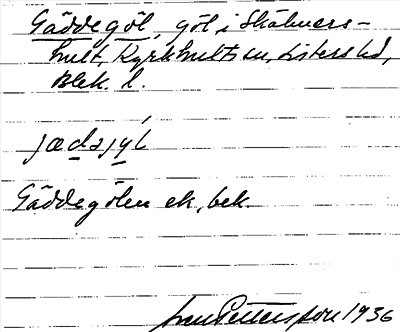 Gäddegöl, göl i Skälmers-
hult, Kyrkhults sn, Listers hd,
Blek. l.
jædəjyl
Gäddegölen ek. bek.
Pettersson 1936